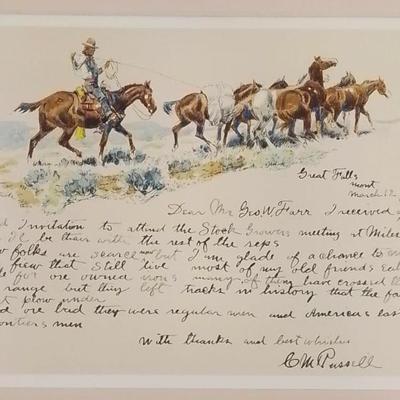 Great Falls
Mont
March 12
Dear Mr Geo. W Farr I received
Invitation to attend the Stock Growers meeting at Miles
I'll be thair with the rest of the reps
folks are scarce now but I am glade of a chance to
few that still live most of my old friends
are owned irons many of them have crossed the
range but they left tracks in history that the
plow under
bred they were regular men and Americas last
frontiers men
With thanks and best whishes
CM Russell